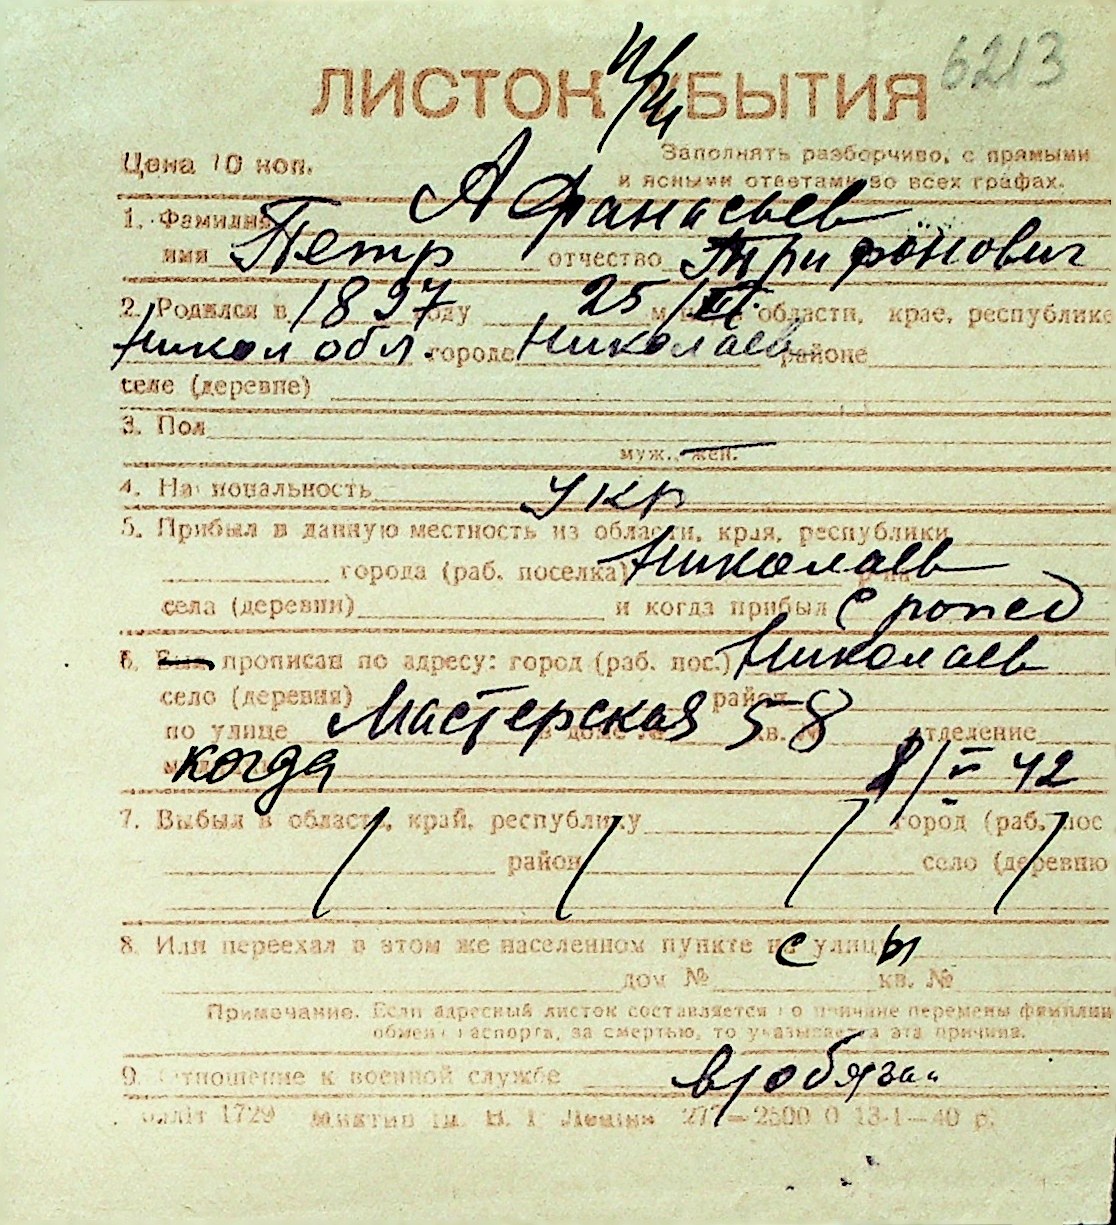 6213
ЛИСТОК УБЫТИЯ
Цена 10 коп.
Заполнять разборчиво, с прямыми
и ясными ответами во всех графах.
1. Фамилия Афанасьев
имя Петр отчество Трифонович
2. Родился в 1897 году 25/ м-ца в области, крае, республике
Никол обл. городе Николаев районе
селе (деревне)
3. Пол
муж., жен.
4. Национальность укр
5. Прибыл в данную местность из области, края, республики
города (раб. поселка) Николаев р-на
села (деревни) и когда прибыл с рожд
6. Был прописан по адресу: город (раб. пос.) Николаев
село (деревня) район
по улице Мастерская 58 в доме № кв. № отделение
когда 8/ 42
7. Выбыл в область, край, республику город (раб. пос
район село (деревню
8. Или переехал в этом же населенном пункте на улицу с ы
дом № кв. №
Примечание. Если адресный листок составляется по причине перемены фамилии
обмена паспорта, за смертью, то указывается эта причина.
9. Отношение к военной службе в/обязан
1729 277—2500 0 13-1—40 р.